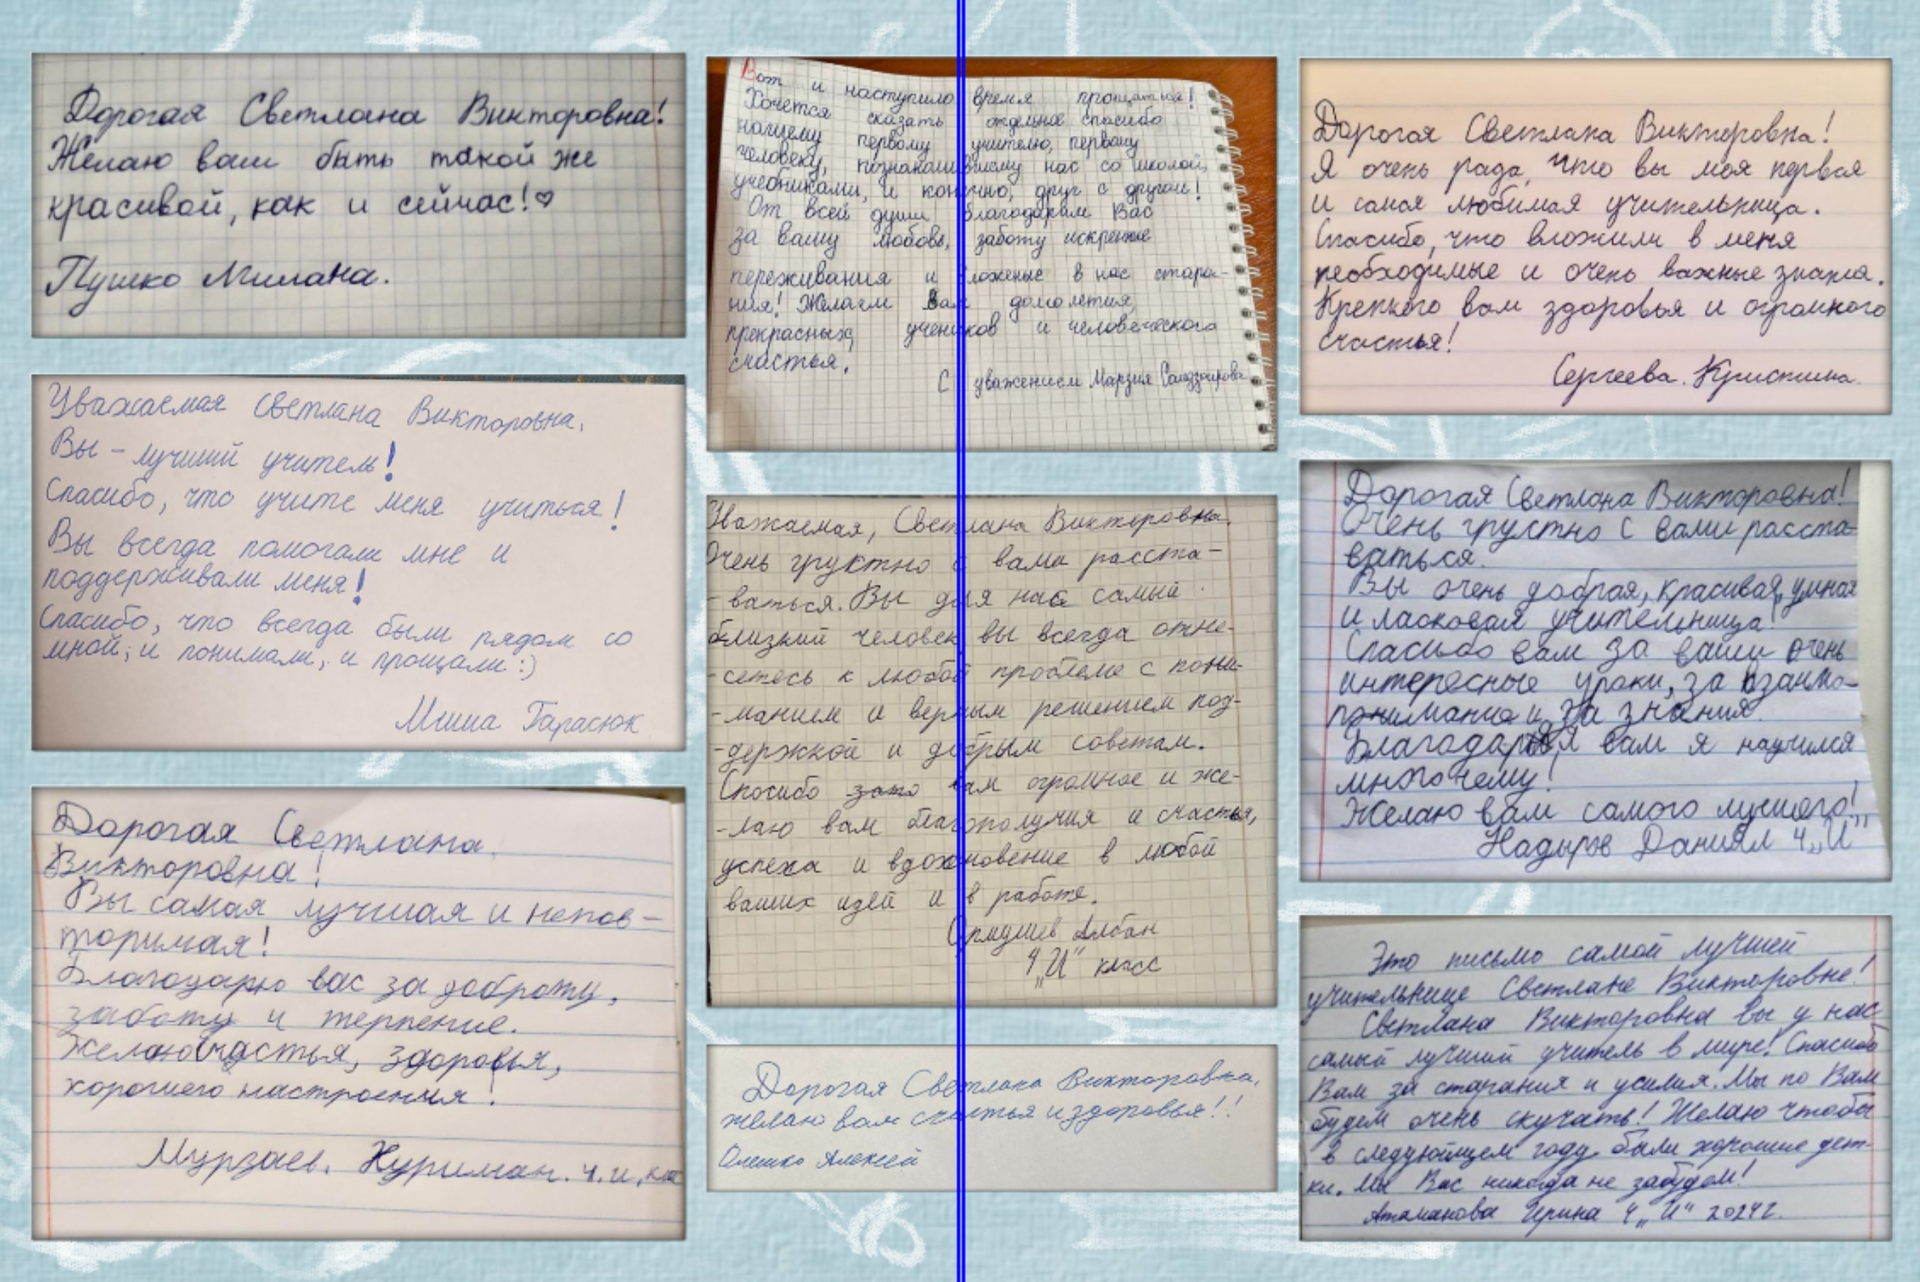 Дорогая Светлана Викторовна!
Желаю вам быть такой же
красивой, как и сейчас!♡
Пушко Милана.
Уважаемая Светлана Викторовна,
Вы – лучший учитель!
Спасибо, что учите меня учиться!
Вы всегда помогали мне и
поддерживали меня!
Спасибо, что всегда были рядом со
мной, и понимали, и прощали :)
Миша Тарасюк
Дорогая Светлана
Викторовна!
Вы самая лучшая и непов-
торимая!
Благодарю вас за доброту,
заботу и терпение.
Желаю счастья, здоровья,
хорошего настроения!
Мурзаев. Нуриман. 4. и. кла
Вот и наступило время прощаться!
Хочется сказать отдельное спасибо
нашему первому учителю, первому
человеку, познакомившему нас со школой,
учебниками, и конечно, друг с другом!
От всей души благодарим Вас
за вашу любовь, заботу искрение
переживания и вложеные в нас стара-
ния! Желаем Вам долголетия,
прекрасных, учеников и человеческого
счастья!
С уважением Марзия
Уважаемая, Светлана Викторовна.
Очень груктно с вами расста-
-ваться. Вы для нас самый
близкий человек вы всегда отне-
-сетесь к любой проблеме с пони-
-манием и верным решением под-
-держкой и добрым советам.
Спосибо вам огромное и же-
-лаю вам благополучия и счастья,
успеха и вдохновение в любой
ваших идей и в работе.
Албан
4 „И" класс
Дорогая Светлана Викторовна,
желаю вам счастья и здоровья!!
Олешко Алексей
Дорогая Светлана Викторовна!
Я очень рада, что вы моя первая
и самая любимая учительница.
Спасибо, что вложили в меня
необходимые и очень важные знания.
Крепкого вам здоровья и огромного
счастья!
Сергеева. Кристина.
Дорогая Светлана Викторовна!
Очень грустно с вами расста-
ваться.
Вы очень добрая, красивая, умная
и ласковая учительница!
Спасибо вам за ваши очень
интересные уроки, за взаимо-
понимание и за знания.
Благодаря вам я научился
многочему!
Желаю вам самого лучшего!
Надыров Даниял 4 „И"
Это письмо самой лучшей
учительнице Светлане Викторовне!
Светлана Викторовна вы у нас
самый лучший учитель в мире! Спасибо
Вам за старания и усилия. Мы по Вам
будем очень скучать! Желаю чтобы
в следующем году были хорошие дет-
ки. Мы Вас никогда не забудем!
Атаманова Ирина 4 „И" 2024 г.